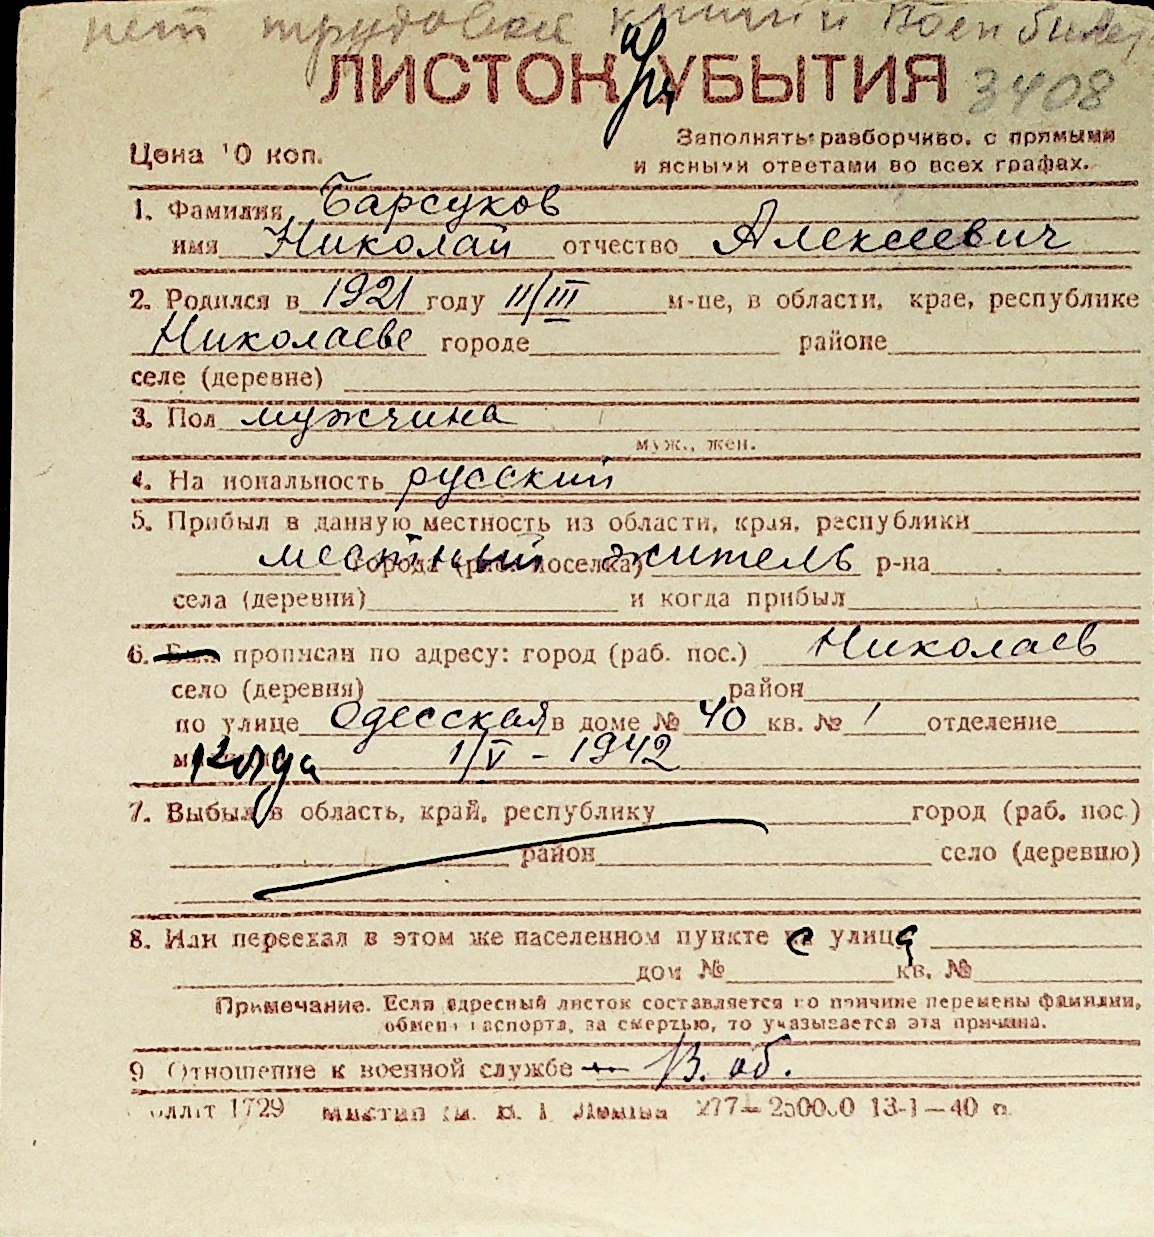 нет трудовой книги и Воен билет
ЛИСТОК УБЫТИЯ 3408
Цена 10 коп.
Заполнять разборчиво, с прямыми
и ясными ответами во всех графах.
1. Фамилия Барсуков
имя Николай отчество Алексеевич
2. Родился в 1921 году 11/III м-це, в области, крае, республике
Николаеве городе районе
селе (деревне)
3. Пол мужчина
муж., жен.
4. Национальность русский
5. Прибыл в данную местность из области, края, республики
местный житель города (раб. поселка) р-на
села (деревни) и когда прибыл
6. Был прописан по адресу: город (раб. пос.) Николаев
село (деревня) район
по улице Одесская в доме № 40 кв. № 1 отделение
когда 1/V - 1942
7. Выбыл в область, край, республику город (раб. пос.)
район село (деревню)
8. Или переехал в этом же населенном пункте с улицы
дом № кв. №
Примечание. Если адресный листок составляется по причине перемены фамилии,
обмена паспорта, за смертью, то указывается эта причина.
9 Отношение к военной службе В. об.
1729 277— 250000 13-1—40 г.